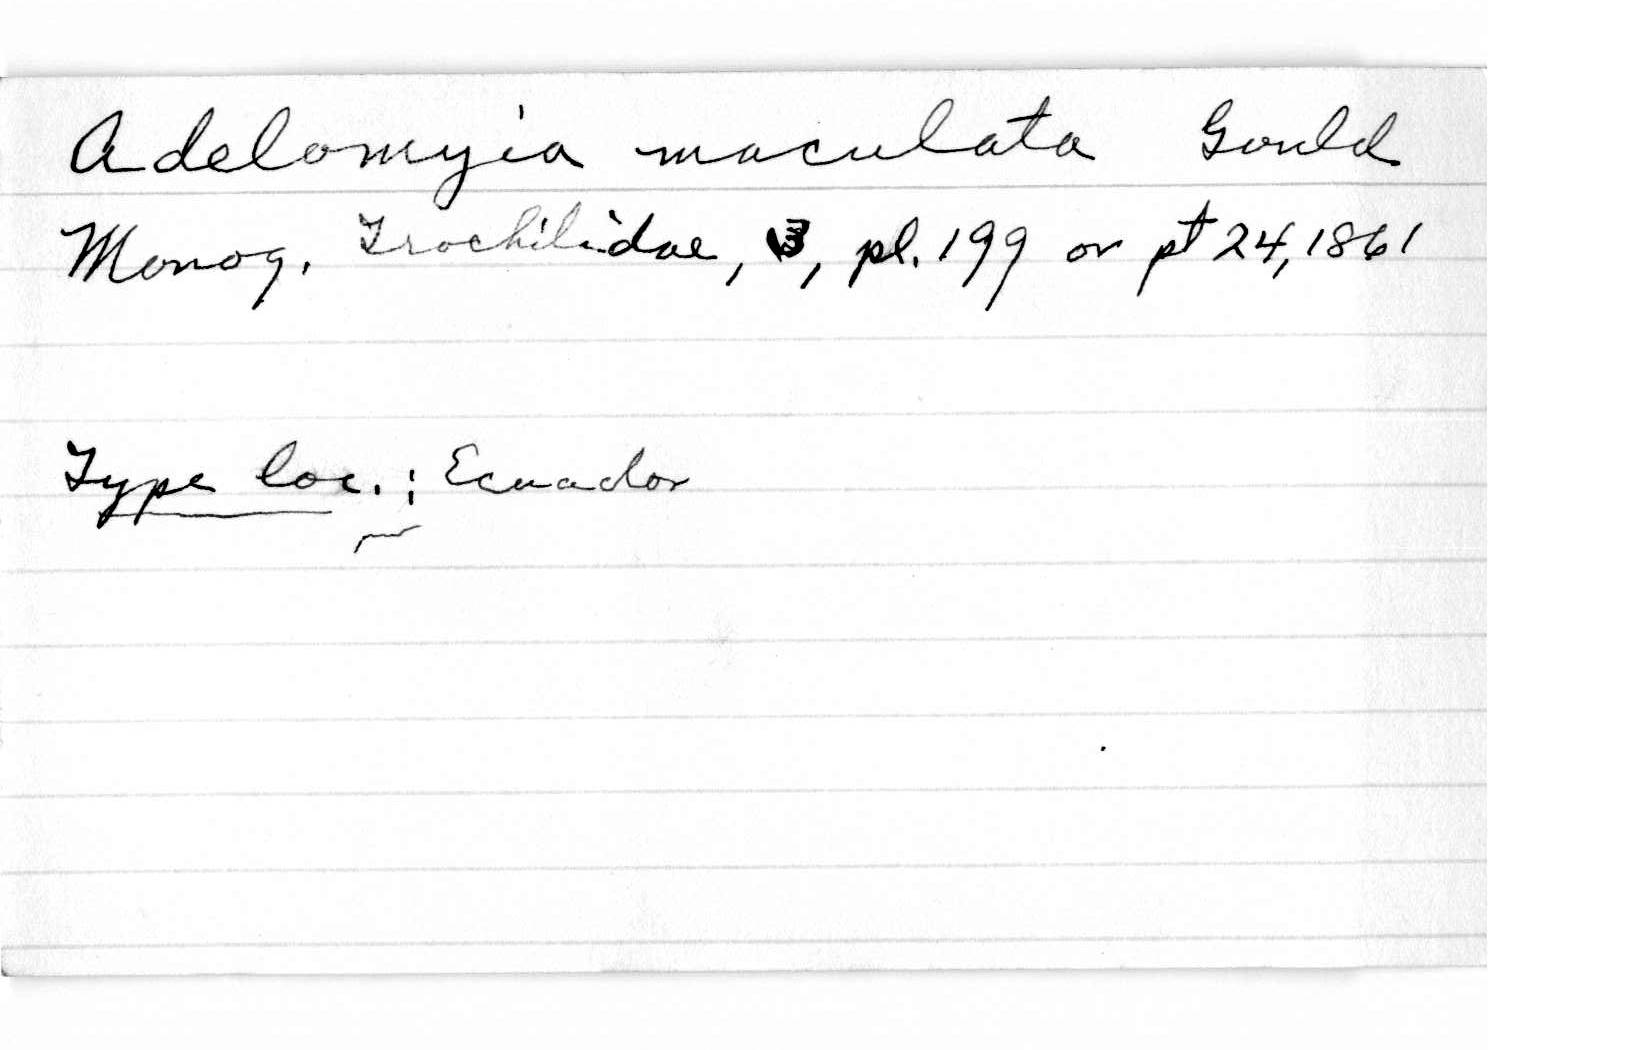 Adelomyia maculata Gould
Monog. Trochilidae, 3, pl. 199 or pt 24, 1861
Type loc.: Ecuador